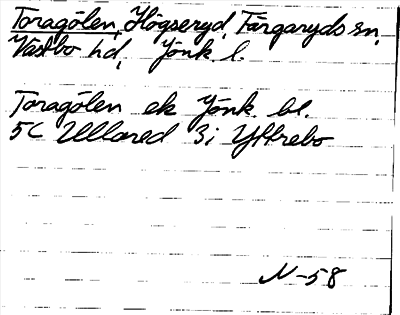 Toragölen, Högseryd, Färgaryds sn,
Västbo hd, Jönk. l.
Toragölen ek Jönk. bl.
5C Ullared 3i Yttrebo
N-58